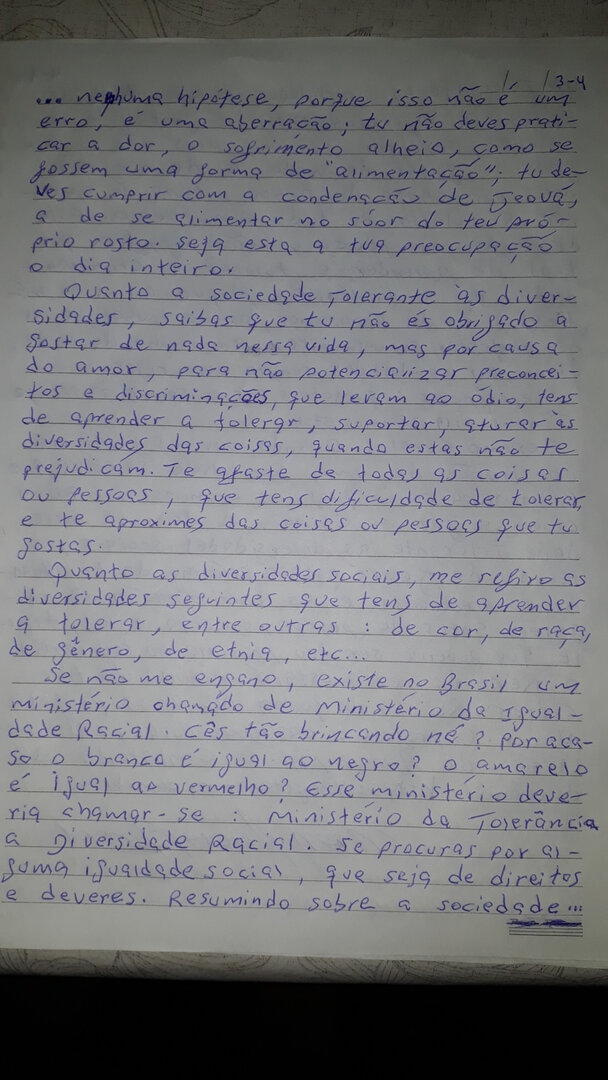 3-4
... nenhuma hipótese, porque isso não é um
erro, é uma aberração; tu não deves prati-
car a dor, o sofrimento alheio, como se
fossem uma forma de "alimentação"; tu de-
ves cumprir com a condenação de Jeová,
a de se alimentar no súor do teu pró-
prio rosto. Seja esta a tua preocupação
o dia inteiro.
Quanto a sociedade tolerante às diver-
sidades, saibas que tu não és obrigado a
gostar de nada nessa vida, mas por causa
do amor, para não potencializar preconcei-
tos e discriminações, que levam ao ódio, tens
de aprender a tolerar, suportar, aturar às
diversidades das coisas, quando estas não te
prejudicam. Te afaste de todas as coisas
ou pessoas, que tens dificuldade de tolerar,
e te aproximes das coisas ou pessoas que tu
gostas.
Quanto as diversidades sociais, me refiro as
diversidades seguintes que tens de aprender
a tolerar, entre outras: de cor, de raça,
de gênero, de etnia, etc...
Se não me engano, existe no Brasil um
ministério chamado de Ministério da Igual-
dade Racial. Cês tão brincando né? Por aca-
so o branco é igual ao negro? O amarelo
é igual ao vermelho? Esse ministério deve-
ria chamar-se: Ministério da Tolerância
a Diversidade Racial. Se procuras por al-
guma igualdade social, que seja de direitos
e deveres. Resumindo sobre a sociedade...